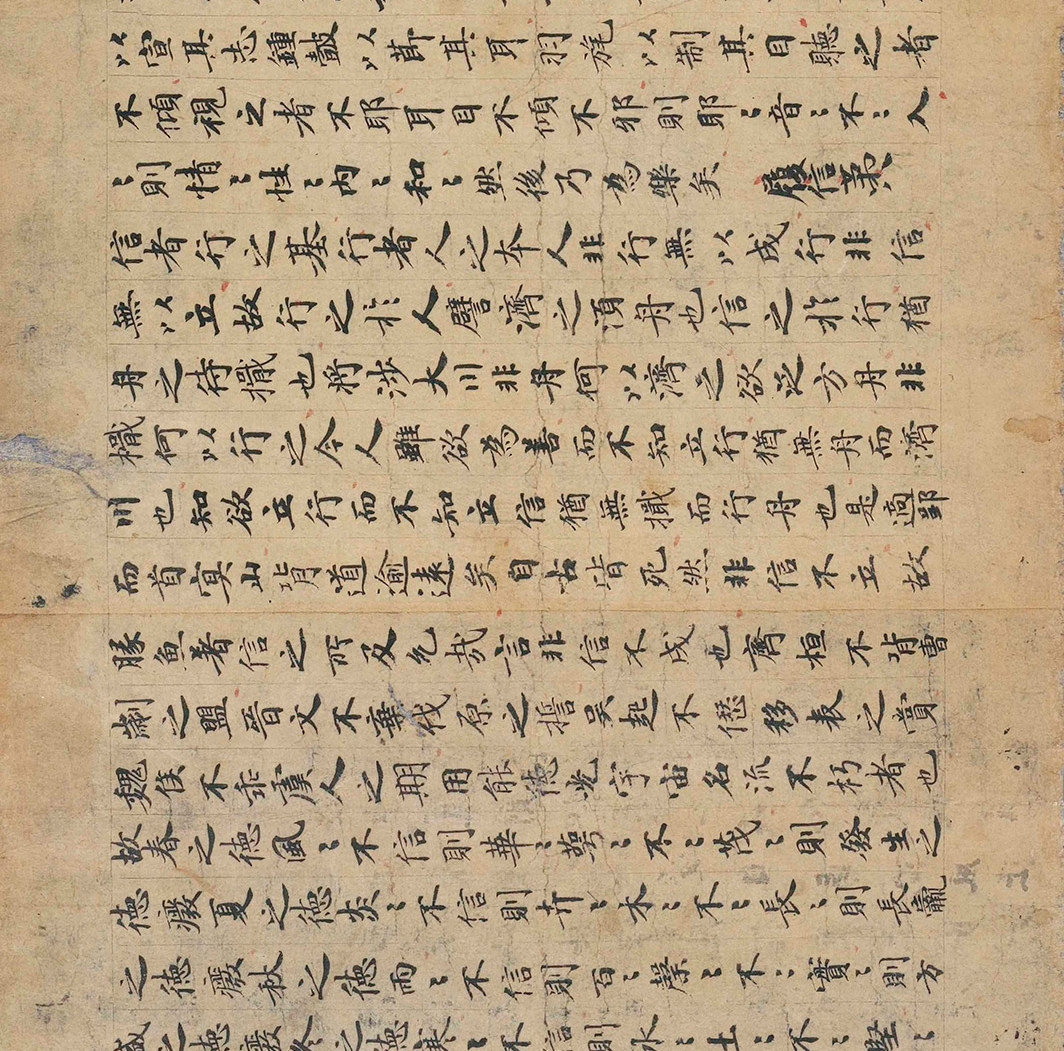 以宣其志鍾皷以節其耳羽旄以制其目聽之者
不傾視之者不耶耳目不傾不邪則耶〻音〻不〻入
〻則情〻性〻内〻和〻然後乃為樂矣 履信第八
信者行之基行者人之本人非行無以成行非信
無以立故行之於人譬濟之湏舟也信之於行猶
舟之待檝也將涉大川非舟何以濟之欲泛方舟非
檝何以行之今人雖欲為善而不知立行猶無舟而濟
川也知欲立行而不知立信猶無檝而行舟也是適郢
而首冥山背道逾遠矣自古皆死然非信不立故
豚魚著信之所及允哉言非信不成也齊桓不背曹
劌之盟晉文不棄伐原之誓吳起不僁移表之賞
魏侯不乖虞人之期用能德光宇宙名流不朽者也
故春之德風〻不信則華〻萼〻不〻茂〻則發生之
德癈夏之德炎〻不信則卉〻木〻不〻長〻則長贏
之德癈秋之德雨〻不信則百〻糓〻不〻實〻則方
盛之德癈冬之德寒〻不信則水〻土〻不〻堅〻